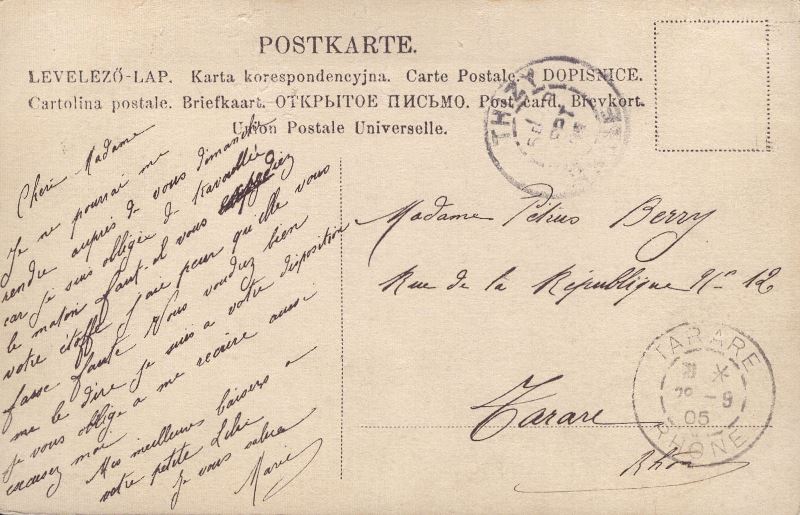 POSTKARTE.
LEVELEZŐ-LAP. Karta korespondencyjna. Carte Postale. DOPISNICE.
Cartolina postale. Briefkaart. ОТКРЫТОЕ ПИСЬМО. Post card. Brevkort.
Union Postale Universelle.
THIZY
RHONE
Chère Madame
Je ne pourrai me
rendre auprès de vous dimanche
car je suis obligée de travaillée
le matin faut-il vous expédiez
votre étoffe j'aie peur qu'elle vous
fasse faute Vous voudrez bien
me le dire je suis a votre disposition
Je vous oblige a me recrire aussi
excusez moi
Mes meilleures baisers a
votre petite Lili
Je vous salue
Marie
Madame Pétrus Berry
Rue de la République No 12
Tarare
Rhône
TARARE
-9
05
RHONE